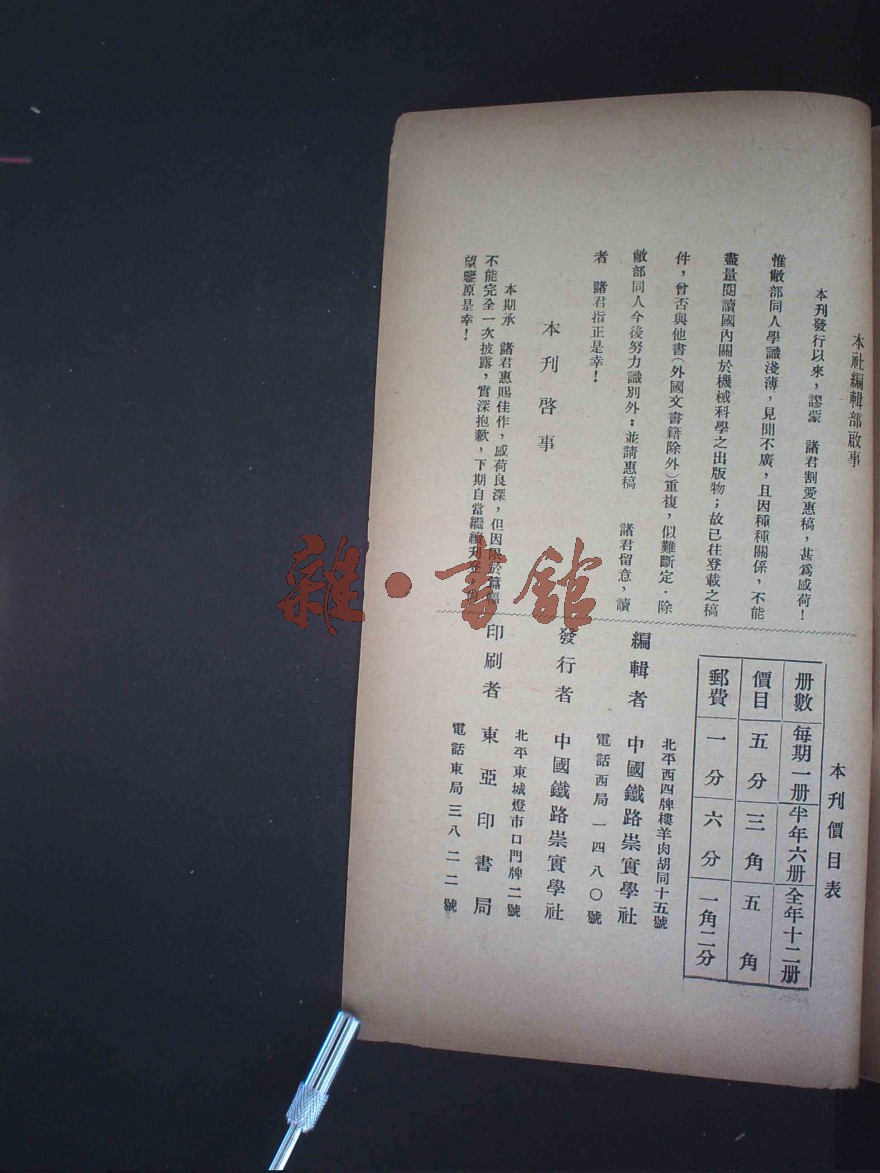 本社編輯部啟事
本刊發行以來，謬蒙　諸君割愛惠稿，甚爲感荷！
惟敝部同人學識淺薄，見聞不廣，且因種種關係，不能
盡量閱讀國內關於機械科學之出版物；故已往登載之稿
件，曾否與他書（外國文書籍除外）重複，似難斷定．除
敝部同人今後努力識別外：並請惠稿　諸君留意，讀
者　諸君指正是幸！
本刊啓事
本期承　諸君惠賜佳作，感荷良深，但因限於篇幅
不能完全一次披露，實深抱歉，下期自當繼續刋登，
望鑒原是幸！
本刊價目表
册數 每期一册 半年六册 全年十二册
價目 五分 三角 五角
郵費 一分 六分 一角二分
北平西四牌樓羊肉胡同十五號
編輯者 中國鐵路崇實學社
電話西局一四八〇號
發行者 中國鐵路崇實學社
北平東城燈市口門牌二號
印刷者 東亞印書局
電話東局三八二二號
雜·書館